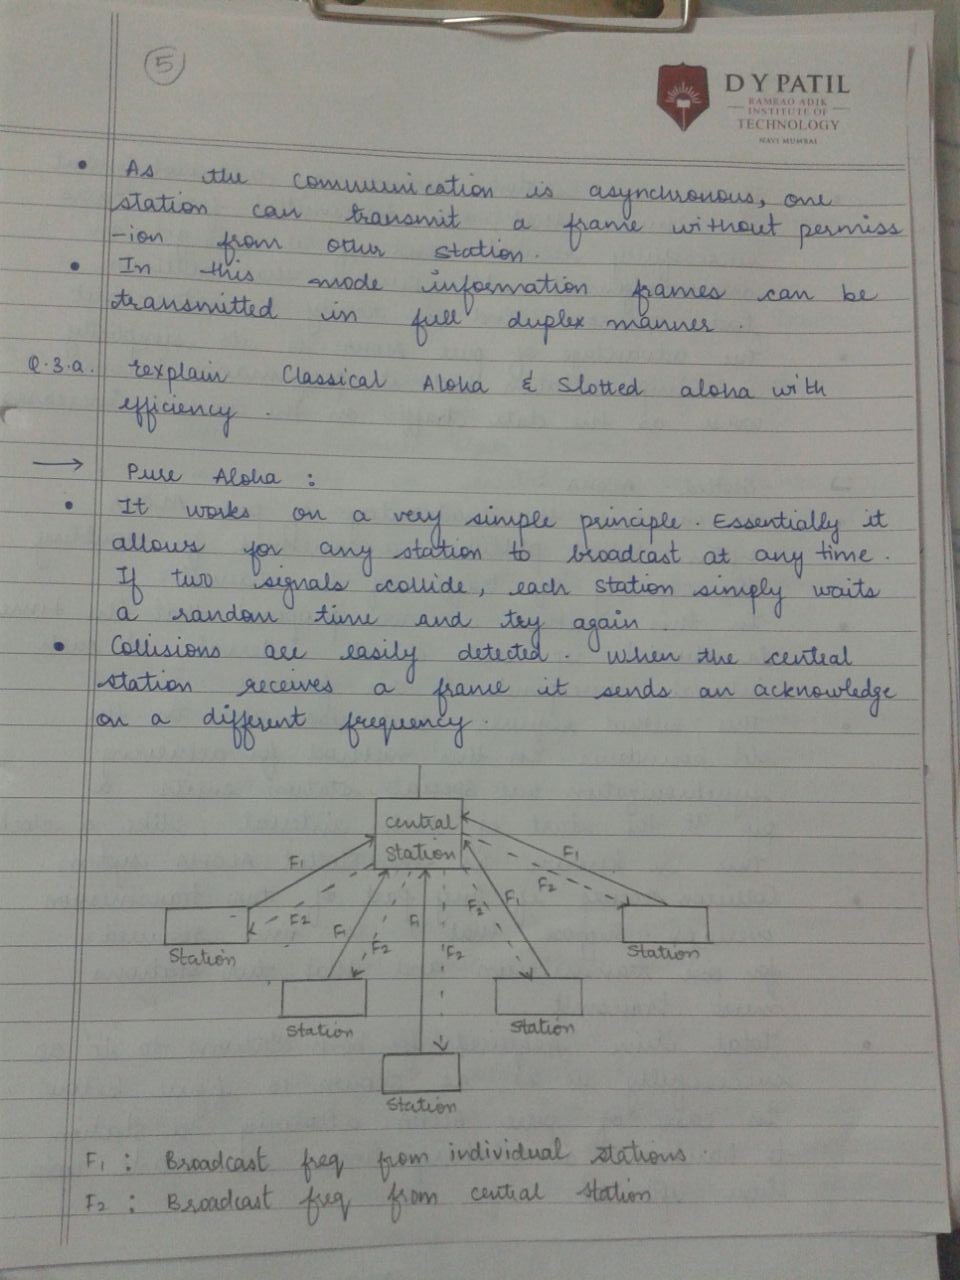 5
D Y PATIL
RAMRAO ADIK
INSTITUTE OF
TECHNOLOGY
NAVI MUMBAI
• As the communication is asynchronous, one
station can transmit a frame without permiss
-ion from other station.
• In this mode information frames can be
transmitted in full duplex manner.
Q.3.a. Explain Classical Aloha & Slotted aloha with
efficiency.
→ Pure Aloha :
• It works on a very simple principle. Essentially it
allows for any station to broadcast at any time.
If two signals collide, each station simply waits
a random time and try again.
• Collisions are easily detected. When the central
station receives a frame it sends an acknowledge
on a different frequency.
central
station
F1
F1
F2
F2
F1
F2
F1
F2
F1
F2
Station
Station
Station
Station
Station
F1 : Broadcast freq from individual stations.
F2 : Broadcast freq from central station